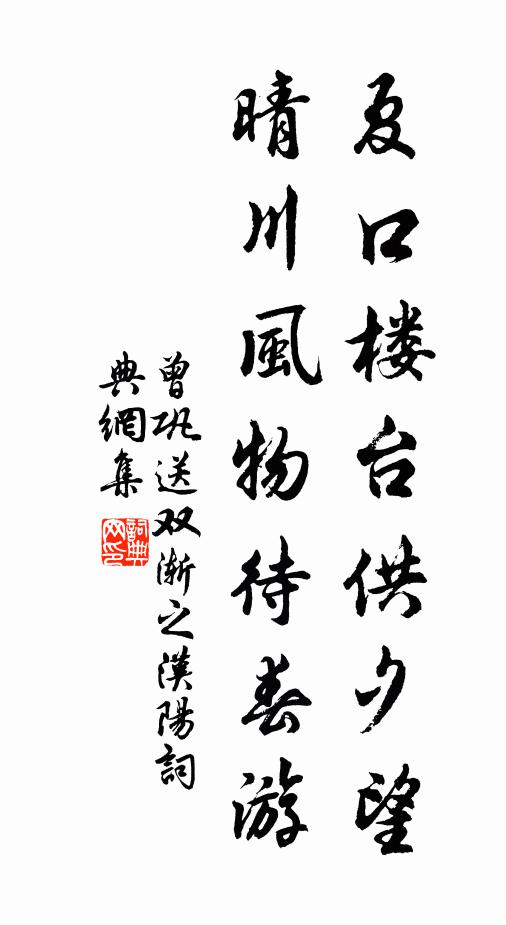 夏口楼台供夕望
晴川風物待春游
曾巩送双渐之漢陽詞
典網集
詞典网印